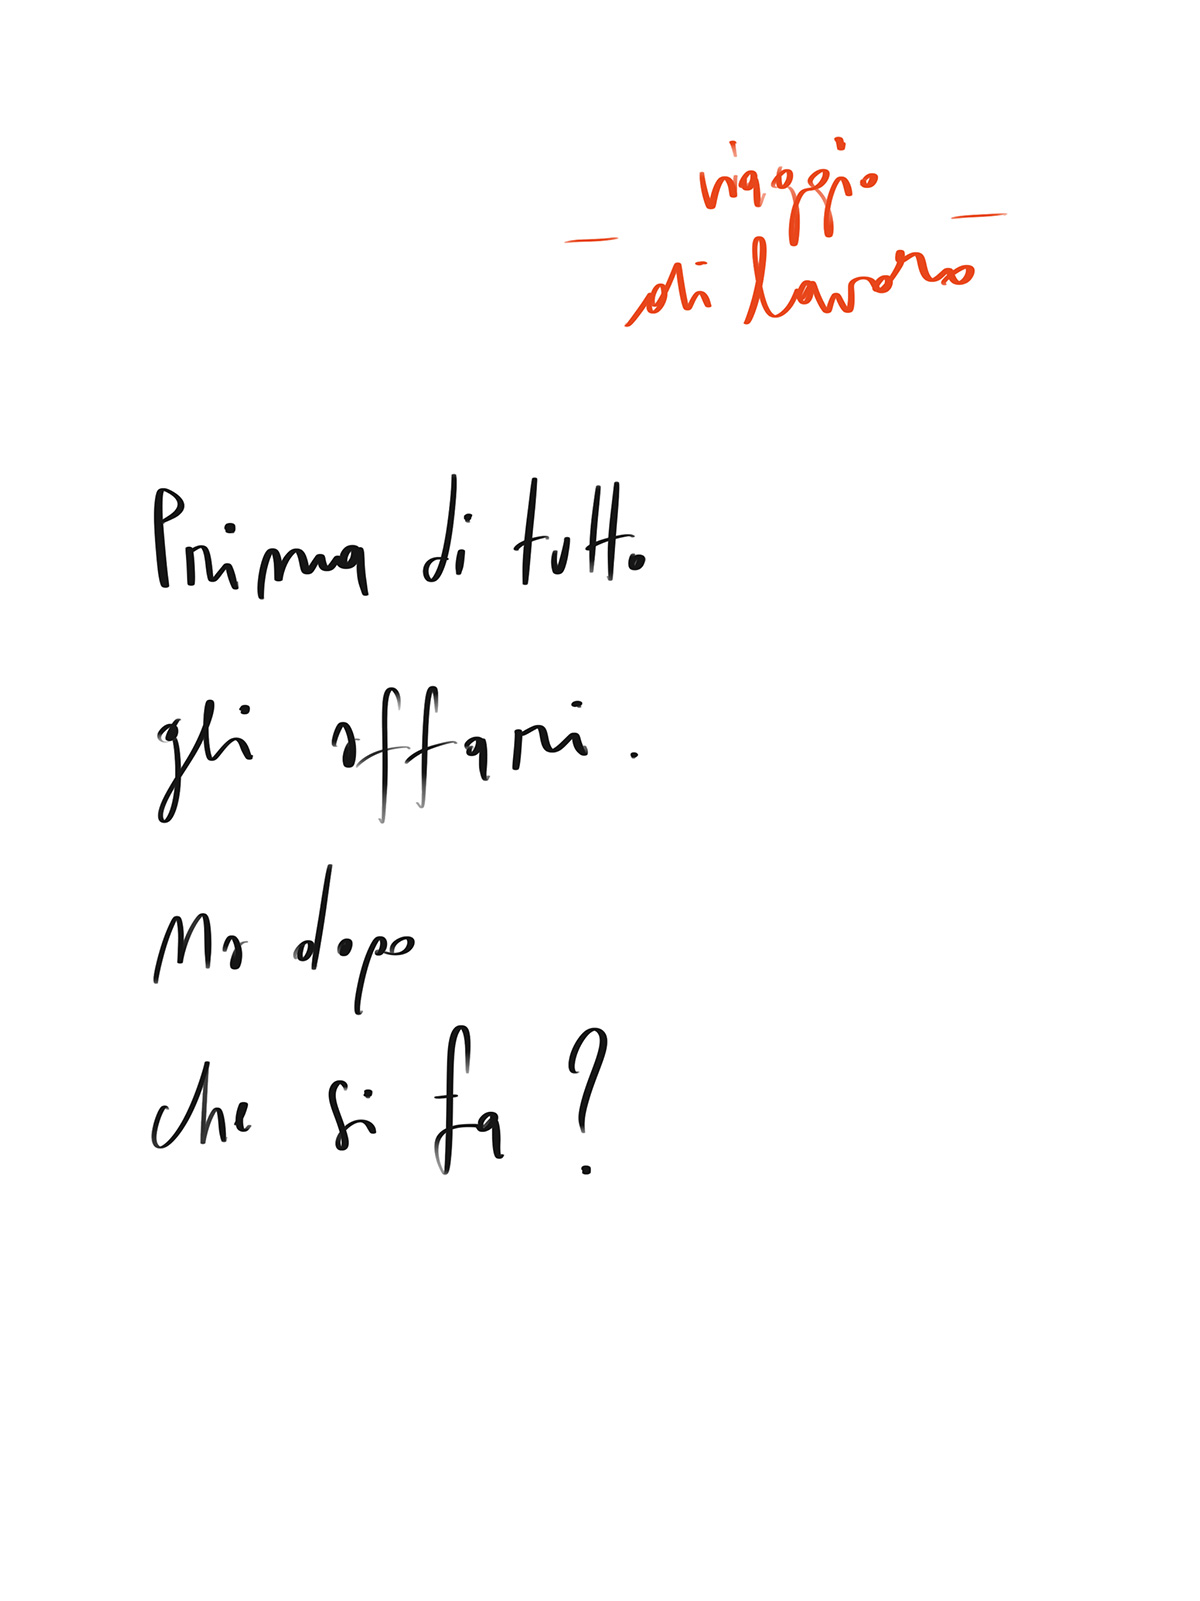 viaggio
— di lavoro —
Prima di tutto
gli affari.
Ma dopo
che si fa?